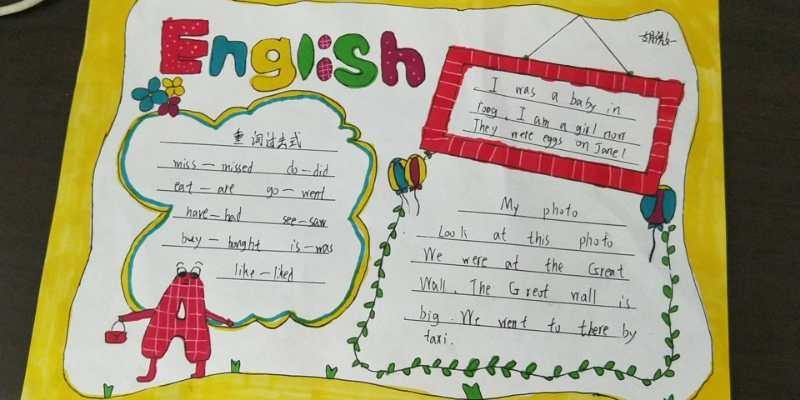 English
I was a baby in
I am a girl now
They were eggs on June 1
重词过去式
miss—missed do—did
eat—ate go—went
have—had see—saw
buy—bought is—was
like—liked
My photo
Look at this photo
We were at the Great
Wall. The Great wall is
big. We went to there by
taxi.